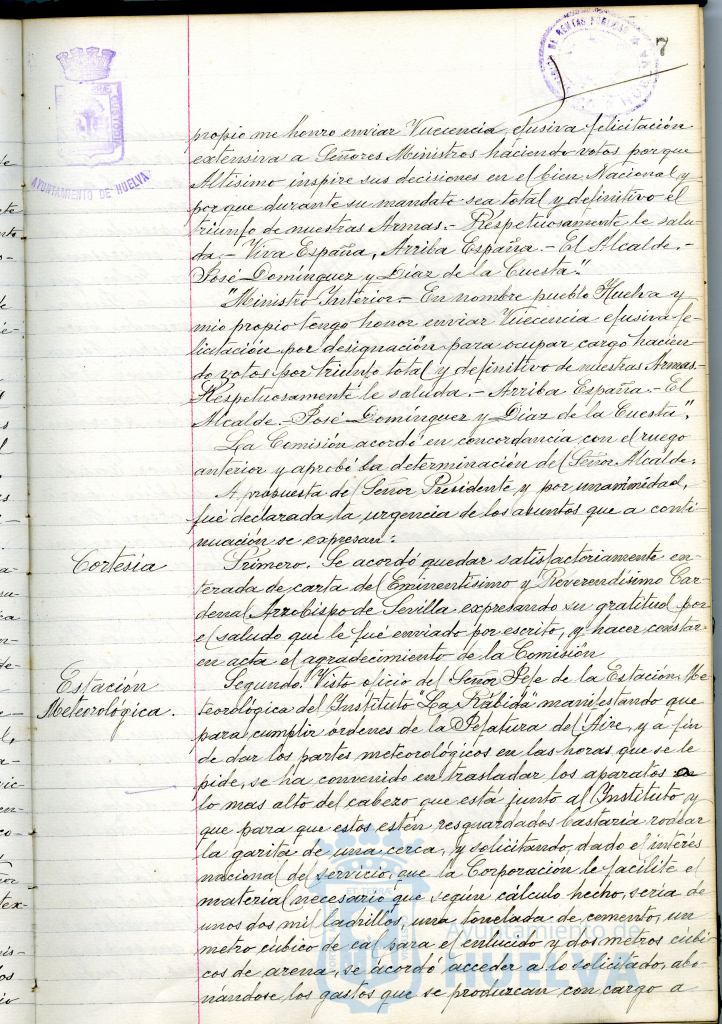 7
AYUNTAMIENTO DE HUELVA
propio me honro enviar Vuecencia, efusiva felicitación
extensiva a Señores Ministros haciendo votos porque
Altisimo inspire sus decisiones en el bien Nacional y
porque durante su mandato sea total y definitivo el
triunfo de nuestras Armas.- Respetuosamente le salu-
da.- Viva España, Arriba España.- El Alcalde.-
José Domínguez y Díaz de la Cuesta".
"Ministro Interior.- En nombre pueblo Huelva y
mio propio tengo honor enviar Vuecencia efusiva fe-
licitación por designación para ocupar cargo hacien-
do votos por triunfo total y definitivo de nuestras Armas.-
Respetuosamente le saluda.- Arriba España.- El
Alcalde.- José Domínguez y Díaz de la Cuesta".
La Comisión acordó en concordancia con el ruego
anterior y aprobó la determinación del Señor Alcalde.
A propuesta del Señor Presidente y por unanimidad,
fué declarada la urgencia de los asuntos que a conti-
nuación se expresan:
Cortesia
Primero. Se acordó quedar satisfactoriamente en-
terada de carta del Eminentisimo y Reverendisimo Car-
denal Arzobispo de Sevilla expresando su gratitud por
el saludo que le fué enviado por escrito, y hacer constar
en acta el agradecimiento de la Comisión
Estación
Meteorológica.
Segundo. Visto oficio del Señor Jefe de la Estación Me-
teorológica del Instituto "La Rábida" manifestando que
para cumplir ordenes de la Jefatura del Aire, y a fin
de dar los partes meteorológicos en las horas que se le
pide, se ha convenido en trasladar los aparatos a
lo mas alto del cabezo que está junto al Instituto y
que para que estos estén resguardados bastaría rodear
la garita de una cerca, y solicitando, dado el interés
nacional del servicio, que la Corporación le facilite el
material necesario que según cálculo hecho, sería de
unos dos mil ladrillos, una tonelada de cemento, un
metro cúbico de cal para el enlucido y dos metros cúbi-
cos de arena, se acordó acceder a lo solicitado, abo-
nándose los gastos que se produzcan con cargo a
Ayuntamiento de
HUELVA